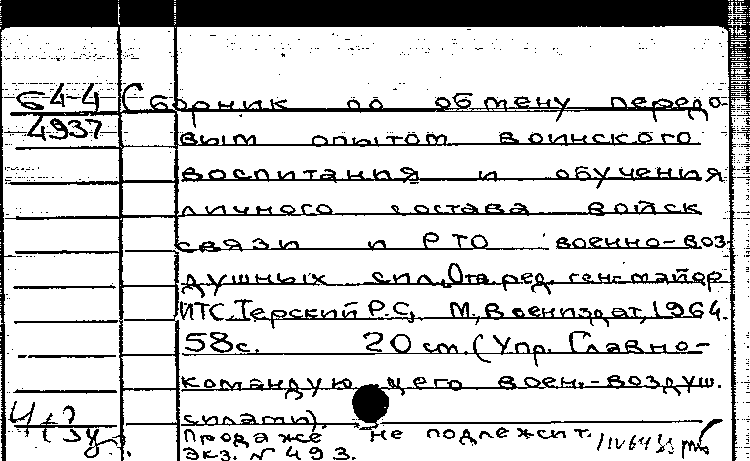 64-4 Сборник по обмену передо-
4937 вым опытом воинского
воспитания и обучения
личного состава войск
связи и РТО военно-воз
душных сил. Отв. ред. ген.-майор
ИТС. Терский Р.С. М., Воениздат, 1964.
58с. 20 см. (Упр. Главно-
командующего воен.-воздуш.
силами).
Продаже не подлежит.
Экз. № 493.